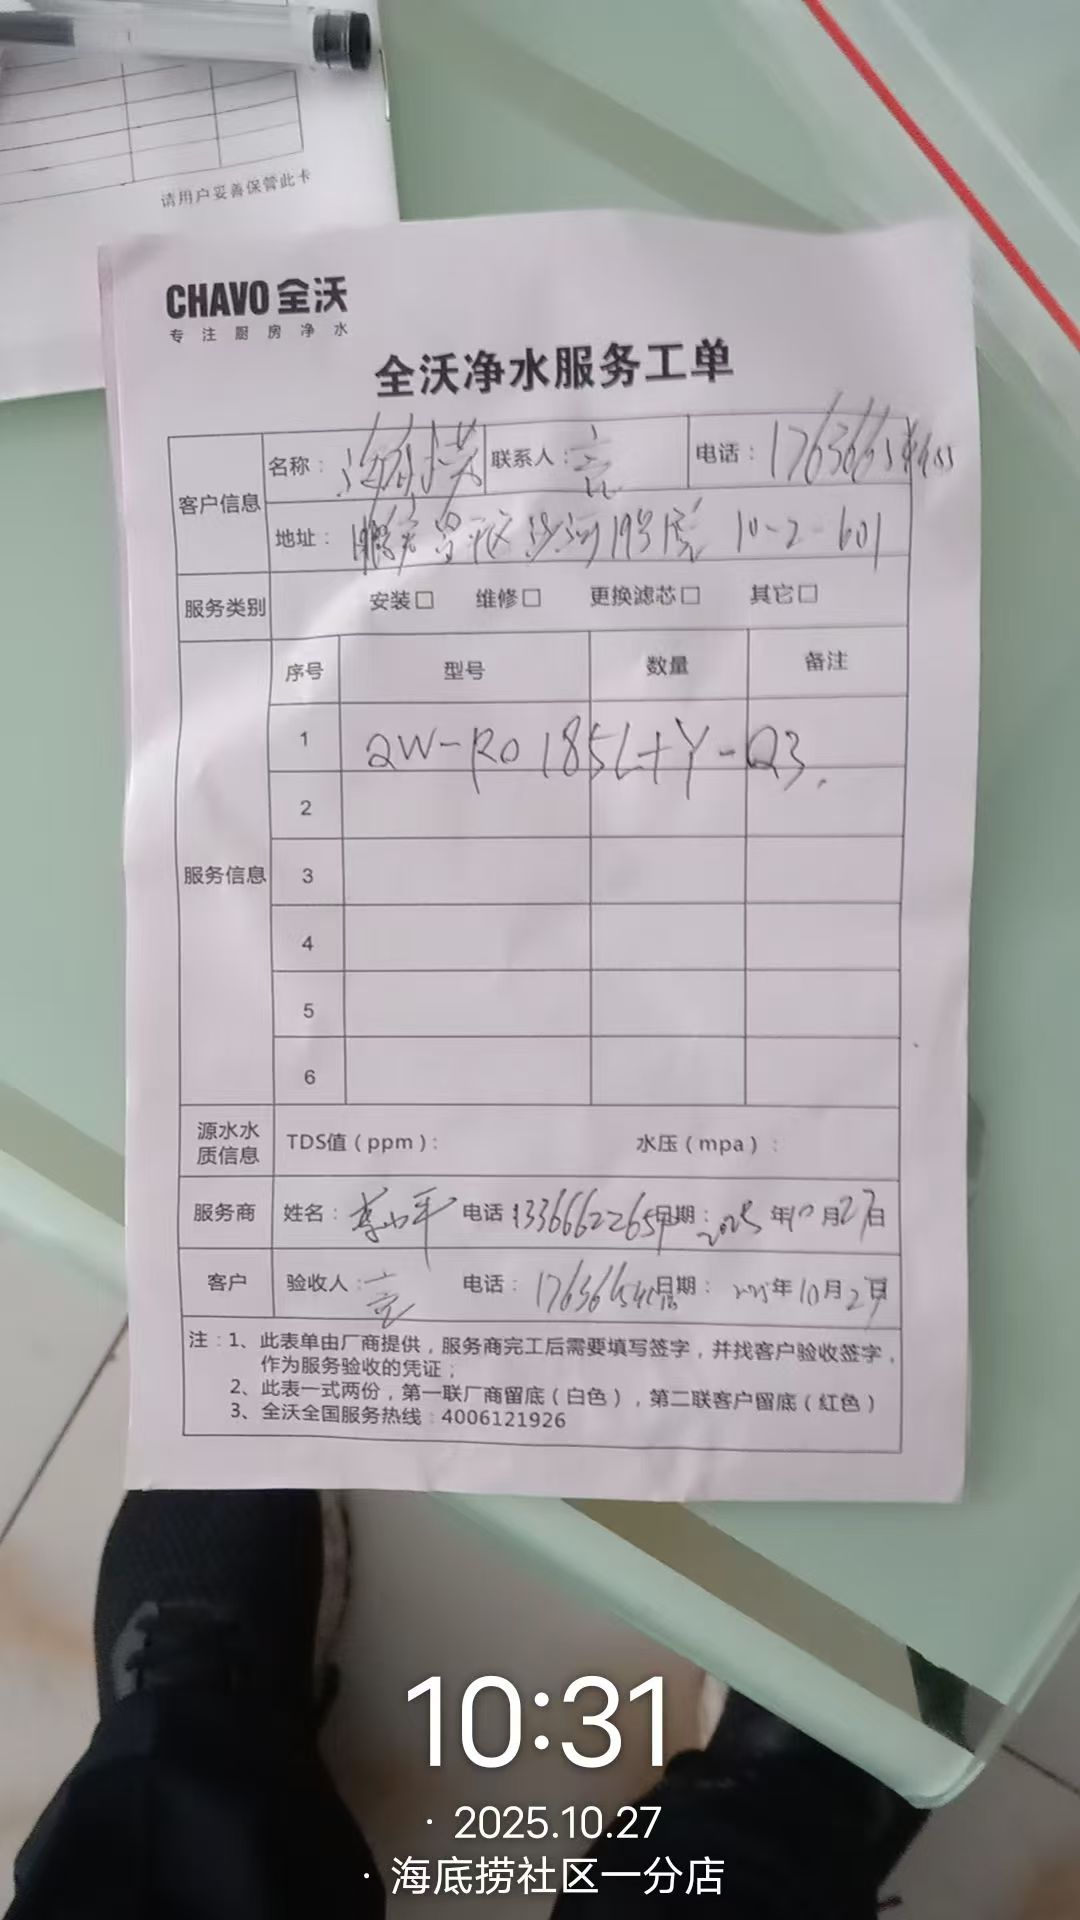 请用户妥善保管此卡
CHAVO 全沃
专注厨房净水
全沃净水服务工单
客户信息 名称： 联系人： 亮 电话：
地址： 昌平区沙河19号院 10-2-601
服务类别 安装□ 维修□ 更换滤芯□ 其它□
服务信息 序号 型号 数量 备注
1 QW-RO185L+Y-Q3.
2
3
4
5
6
源水水质信息 TDS值（ppm）： 水压（mpa）：
服务商 姓名： 李小平 电话 日期： 2025年10月27日
客户 验收人： 亮 电话： 日期： 2025年10月27日
注：1、此表单由厂商提供，服务商完工后需要填写签字，并找客户验收签字，
作为服务验收的凭证；
2、此表一式两份，第一联厂商留底（白色），第二联客户留底（红色）
3、全沃全国服务热线：4006121926
10:31
· 2025.10.27
· 海底捞社区一分店